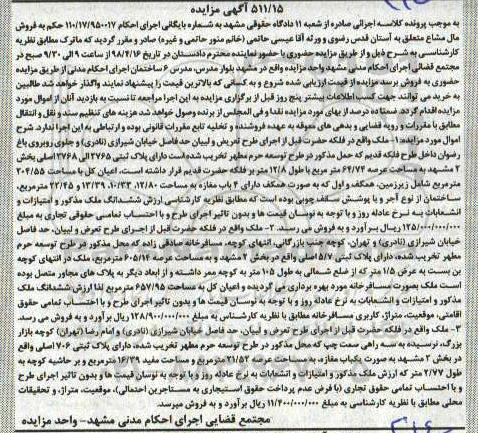 ۵۱۱/۱۵ آگهی مزایده
به موجب پرونده کلاسه اجرائی صادره از شعبه ۱۱ دادگاه حقوقی مشهد به شماره بایگانی اجرای احکام ۱۱۰/۱۷/۹۵۰۰۱۷ حکم به فروش
مال مشاع متعلق به آستان قدس رضوی و ورثه آقا عیسی حاتمی (خانم منور حاتمی و غیره) صادر و مقرر گردید که ماترک مطابق نظریه
کارشناسی به شرح ذیل و از طریق مزایده حضوری با حضور نماینده محترم دادستان در تاریخ ۹۸/۴/۱۶ از ساعت ۹ الی ۹/۳۰ صبح در
مجتمع قضائی اجرای احکام مدنی مشهد واحد مزایده واقع در مشهد بلوار مدرس، مدرس ۶ ساختمان اجرای احکام مدنی از طریق مزایده
حضوری به فروش برسد مزایده از قیمت ارزیابی شده شروع و به کسانی که بالاترین قیمت را پیشنهاد نمایند واگذار خواهد شد طالبین
به خرید می توانند جهت کسب اطلاعات بیشتر پنج روز قبل از برگزاری مزایده به این اجرا مراجعه تا نسبت به بازدید آنان از اموال مورد
مزایده اقدام گردد ضمنا ده درصد از بهای مورد مزایده نقدا و فی المجلس از برنده وصول خواهد شد هزینه های تنظیم سند و نقل و انتقال
مطابق با مقررات و رویه قضایی و بدهی های معوقه به عهده فروشنده و تخلیه تابع مقررات قانونی بوده و ارتباطی به این اجرا ندارد. شرح
اموال مورد مزایده: ۱- ملک واقع در فلکه حضرت قبل از اجرای طرح تعریض و لبیان حد فاصل خیابان شیرازی (نادری) و جلوی روبروی باغ
رضوان داخل طرح فلکه قدیم که حمل مذکور در طرح توسعه حرم مطهر تخریب شده است دارای پلاک ثبتی ۳۷۶۵ الی ۳۷۶۸ اصلی بخش
۲ مشهد به مساحت عرصه ۶۴/۷۴ متر مربع با طول ۱۲/۸ متر بر فلکه حضرت قدیم قرار داشته است، اعیان کل با مساحت ۲۰۴/۵۵
مترمربع شامل زیرزمین، همکف و اول که به صورت همکف دارای ۴ باب مغازه به مساحت ۱۲/۸۰، ۱۰/۳۳، ۱۳/۳۹ و ۲۲/۴۵ مترمربع،
ساختمان از نوع آجر و با پوشش سقف چوبی بوده است که مطابق نظریه کارشناسی ارزش ششدانگ ملک مذکور و امتیازات و
انشعابات به نرخ عادله روز و با توجه به نوسان قیمت ها و بدون تاثیر اجرای طرح و با احتساب تمامی حقوق تجاری به مبلغ
۱۲۵/۰۰۰/۰۰۰/۰۰۰ ریال برآورد و به فروش می رسد. ۲- ملک واقع در فلکه حضرت قبل از اجرای طرح تعریض و لبیان، حد فاصل
خیابان شیرازی (نادری) و تهران، کوچه جنب بازرگانی، انتهای کوچه، مسافرخانه صادقی زاده که محل مذکور در طرح توسعه حرم
مطهر تخریب شده، دارای پلاک ثبتی ۵/۷ اصلی واقع در بخش ۲ مشهد و به مساحت عرصه ۶۰۵/۱۴ مترمربع، ملک در انتهای کوچه
بن بست به عرض ۱/۵ متر که از ضلع شمالی به طول ۱۰۵ متر به کوچه ممر داشته و از ابعاد دیگر به پلاک های مجاور متصل بوده
است ملک بصورت مسافرخانه مورد بهره برداری می گردیده و اعیان کل به مساحت ۶۵۷/۹۵ مترمربع لذا ارزش ششدانگ ملک
مذکور و امتیازات و انشعابات به نرخ عادله روز و با توجه به نوسان قیمت ها و بدون تاثیر اجرای طرح و با احتساب تمامی حقوق
اقامتی، موقعیت، متراژ، کاربری مسافرخانه مطابق با نظریه کارشناس به مبلغ ۱۲۸/۹۰۰/۰۰۰/۰۰۰ ریال برآورد و به فروش می رسد.
۳- ملک واقع در فلکه حضرت قبل از اجرای طرح تعرض و لبیان، حد فاصل خیابان شیرازی (نادری) و امام رضا (تهران) کوچه بازار
بزرگ، نرسیده به سه راهی سمت چپ که محل مذکور در طرح توسعه حرم مطهر تخریب شده، دارای پلاک ثبتی ۷۰۶ اصلی واقع
در بخش ۲ مشهد به صورت یکباب مغازه، به مساحت عرصه ۲۱/۵۲ مترمربع و مساحت مفید ۱۶/۳۹ مترمربع و بر حاشیه کوچه به
طول ۲/۷۷ متر که ارزش ملک مذکور و امتیازات و انشعابات به نرخ عادله روز و با توجه به نوسان قیمت ها و بدون تاثیر اجرای طرح
و با احتساب تمامی حقوق تجاری (با فرض عدم پرداخت حقوق استیجاری به مستاجرین احتمالی)، موقعیت، متراژ، و تحقیقات
محلی مطابق با نظریه کارشناسی به مبلغ ۱۱/۴۰۰/۰۰۰/۰۰۰ ریال برآورد و به فروش میرسد.
مجتمع قضایی اجرای احکام مدنی مشهد- واحد مزایده